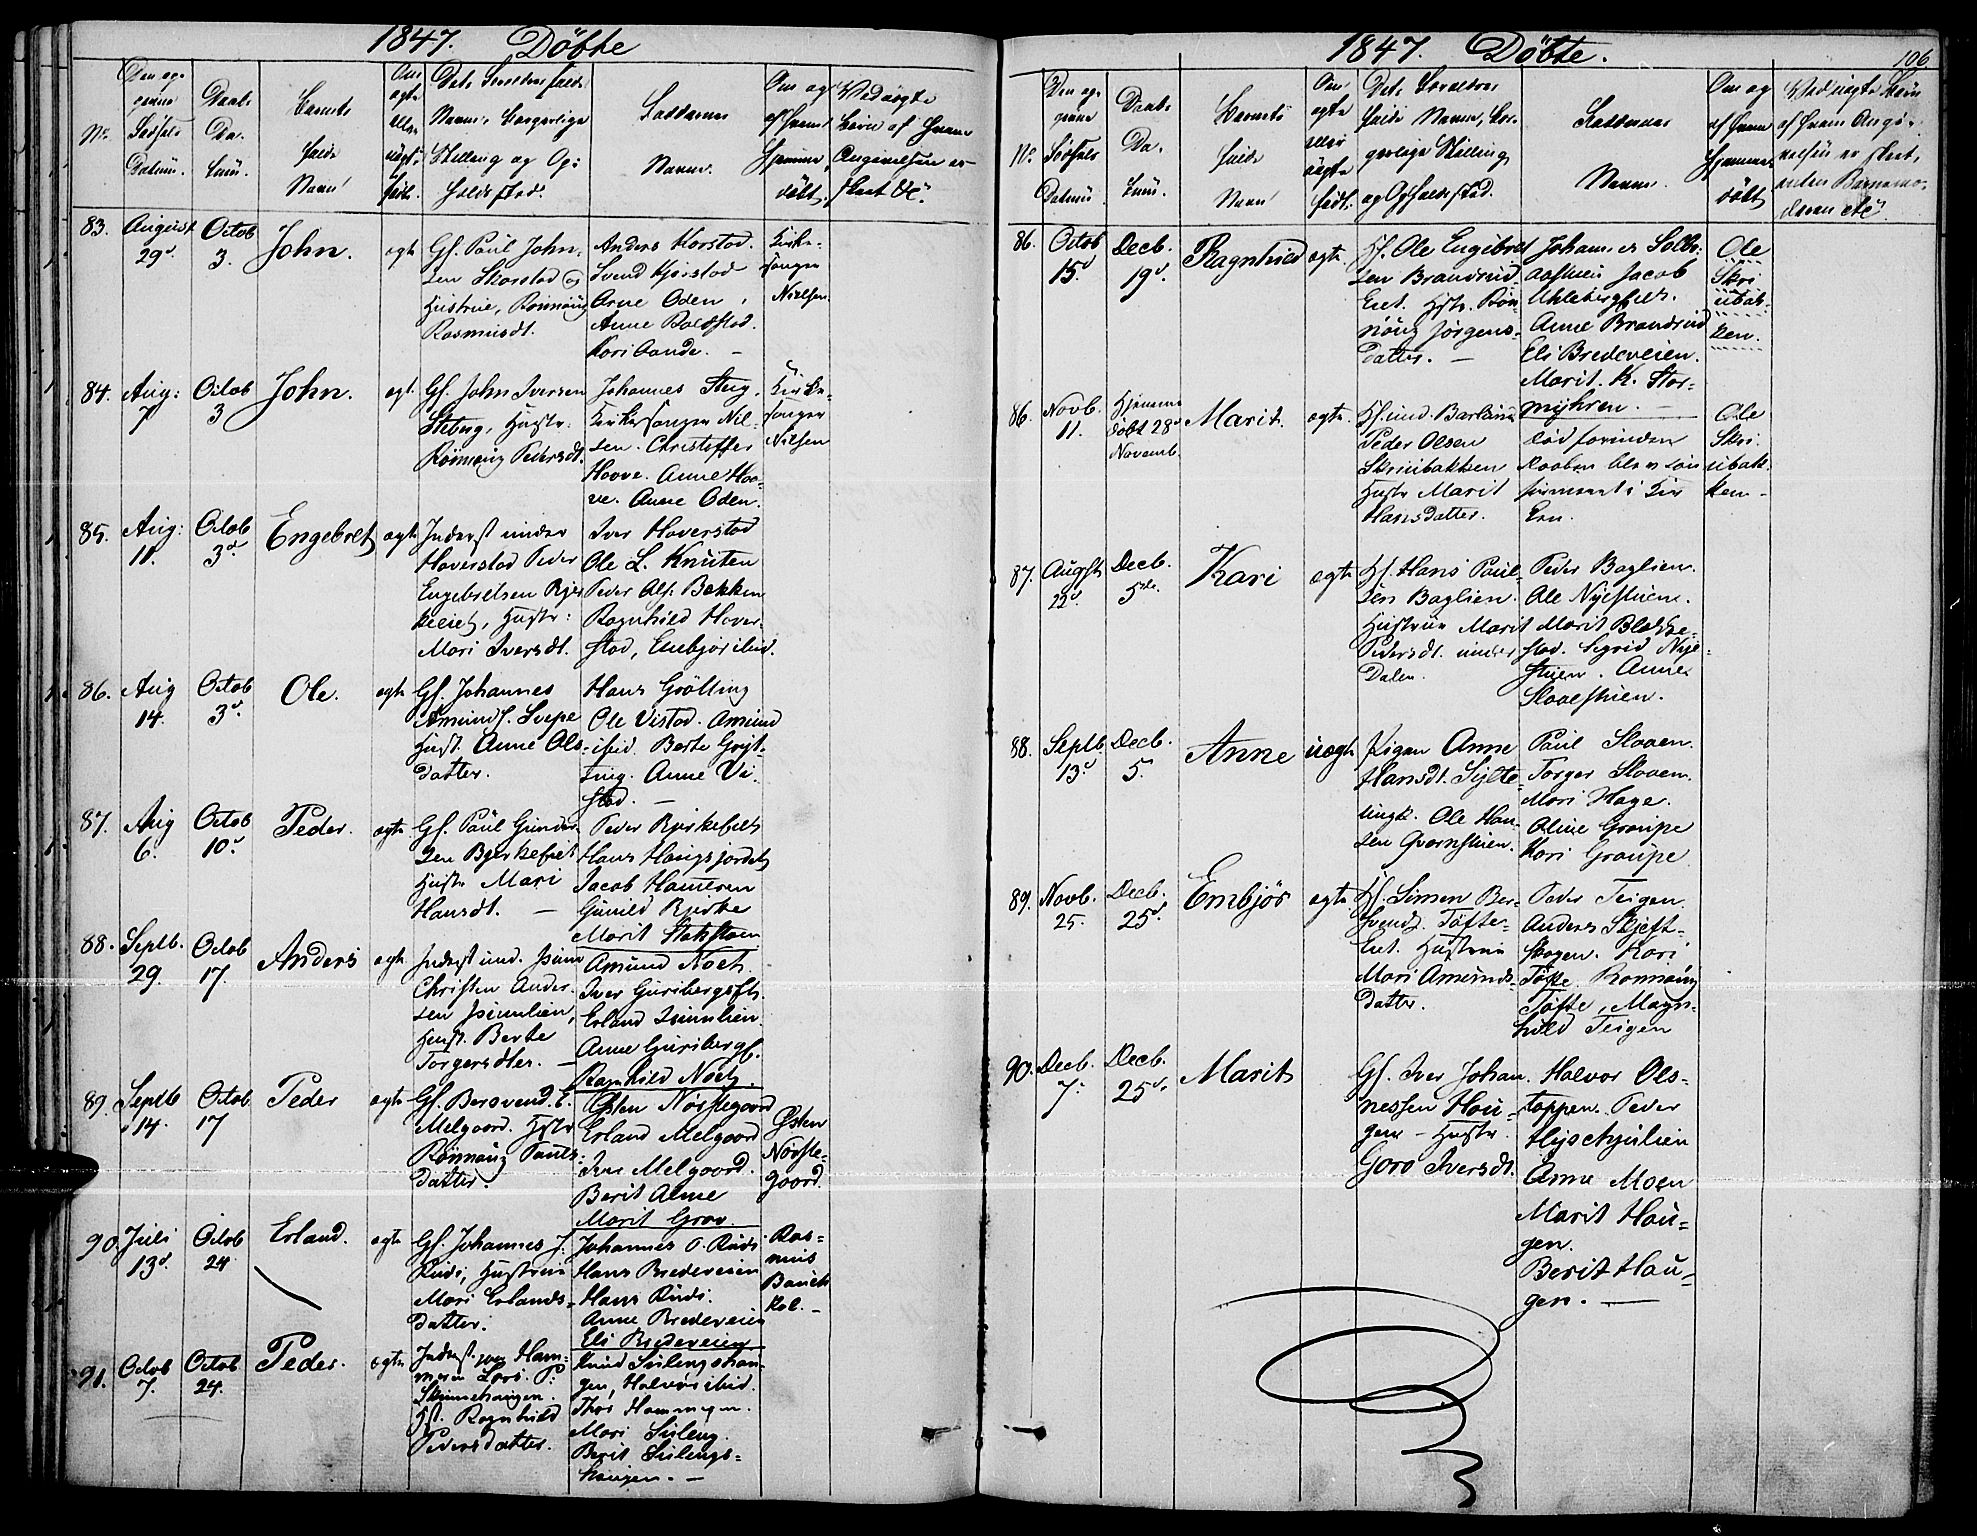 1847. Döbte
No.
Den op-
givne
Födsels
Datum.
Daabs
Da-
tum.
Barnets
fulde
Navn
Om
ægte
eller
uægte
født.
Dets Forældres fulde
Navn, borgerlige
Stilling og Op-
holdssted.
Faddernes
Navne.
Om og
af hvem
hjemme-
døbt.
Ved uægte
Børn af hvem
Angivelsen er
skeet &c.
83.
August
29d.
Octob
3.
John.
ægte
Gf. Paul John-
sen Skorstad og
Hustrue, Rönnoug
Rasmusdt.
Anders Korstad.
Svend Kjorstad
Arne Oden,
Anne Boldstad.
Kari Aande. —
Kirke-
sanger
Nielsen
84.
Aug:
7
Octob
3
John.
ægt.
Gf. John Iversen
Steberg, Hustr:
Rönnoug Pedersdt.
Johannes Steig,
Kirkesanger Nil-
sen. Christoffer
Hoove. Anne Hoo-
ve. Anne Oden.
Kirke-
sanger
Nilsen
85.
Aug:
11.
Octob
3d.
Engebret
ægte
Inderst under
Hoverstad Peder
Engebretsen Bjer
keeiet, Hustr:
Mari Iversdt.
Iver Hoverstad
Ole L. Knuten
Peder Ols. Bakken
Ragnhild Hover-
stad, Embjør ibid.
86.
Aug
14.
Octob
3d.
Ole.
ægte
Gf. Johannes
Amunds. Svepe
Hust. Anne Ols-
datter.
Hans Grötting
Ole Vistad. Amund
ibid. Berte Gröt-
ting. Anne Vi-
stad. —
87.
Aug
6.
Octob
10d.
Peder.
ægte
Gf. Paul Gunder-
sen Bjerkefiet
Hustr Mari
Hansdt. —
Peder Bjerkefiet
Hans Haugsjordet
Jacob Hameren
Gunild Bjerke
Marit Stokstoen
88.
Septb.
29.
Octob
17.
Anders
ægte
Inderst und. Isum
Christen Ander-
sen Isumlien,
Hust. Berte
Torgersdter. —
Amund Noet.
Iver Guribergsfl.
Erland Isumlien.
Anne Guribergf.
Ragnhild Noet.
89.
Septb
14.
Octob
17
Peder
ægte
Gf. Bersvend. E.
Melgaard. Hstr
Rönnoug Pauls-
datter.
Østen Nörstegaard
Erland Melgaard
Iver Melgaard.
Berit Alme
Marit Grov.
Østen
Nörste-
gaard.
90.
Juli
13d.
Octob
24
Erland.
ægte
Gf. Johannes J.
Rudi, Hustrue
Mari Erlands-
datter.
Johannes O. Rudi
Hans Bredeveien
Hans Rudi.
Anne Bredeveien
Eli Bredeveien
Ras-
mus
91.
Octob
7.
Octob
24.
Peder.
ægte
Inderst. paa Ham-
meren Lars. P:
Skinnehaugen.
Hst. Ragnhild
Pedersdatter.
Knud Sislengshau-
gen, Halvor ibid.
Thor Hammeren.
Mari Sisleng.
Berit Sislengs-
haugen. —
1847. Döbte.
106
No.
Den op-
givne
Födsels
Datum
Daabs
Da-
tum.
Barnets
fulde
Navn
Om
ægte
eller
uægte
født.
Dets Forældres
fulde Navn, bor-
gerlige Stilling
og Opholdssted.
Faddernes
Navne.
Om og
af hvem
hjemme-
døbt
Ved uægte Børn
af hvem Angi-
velsen er skeet,
uden Barnemo-
deren etc
86.
Octob
15d.
Decb.
19d.
Ragnhild
ægte.
Hf. Ole Engebret
sen Brandrud
Eiet. Hstr. Rön
nöug Jörgens-
datter. —
Johannes Solbr.
Jacob
Uhlebergsfl.
Anne Brandrud
Eli Bredeveien.
Marit. K. Stor-
myhren.
Ole
Skri
ubak-
ken.
86.
Novb.
11.
Hjemme
döbt 28d
Novemb.
Marit.
ægte.
Peder Olsen
Skriubakken
Hustr Marit
Hansdatter.
död forinden
Daaben blev con
firmeret i Kir
ken.
Ole
Skri-
ubak-
ken —
87.
Augst
22d.
Decb.
5te.
Kari
ægte
Hf. Hans Paul-
sen Baglien.
Hustrue Marit
Pedersdt. under
Dalen.
Peder Baglien.
Ole Nyestuen.
Marit Blekke-
stad. Sigrid Nye-
stuen. Anne
Slaaestuen.
88.
Septb.
13d
Decb.
5.
Anne
uægte
Pigen Anne
Hansdt. Sylte
Ungk. Ole Han-
sen Qvernstuen.
Paul Slaaen.
Torger Slaaen.
Mari Hage.
Oline Graupe
Kari Graupe
89.
Novb.
25.
Decb.
25d.
Embjör
ægte
Hf. Simen Ber-
svends. Tofte-
Eiet. Hustrue
Mari Amunds-
datter.
Peder Teigen.
Anders Skjeft-
skogen. Kari
Tofte. Ronnaug
Tofte, Magn-
hild Teigen
90.
Decb.
7.
Decb.
25d.
Marit
Gf. Iver Johan-
nessen Hau-
gen — Hustr.
Goro Iversdt.
Halvor Ols-
toppen. Peder
Anne Moen
Marit Hau-
gen.
Berit Hau-
gen. —